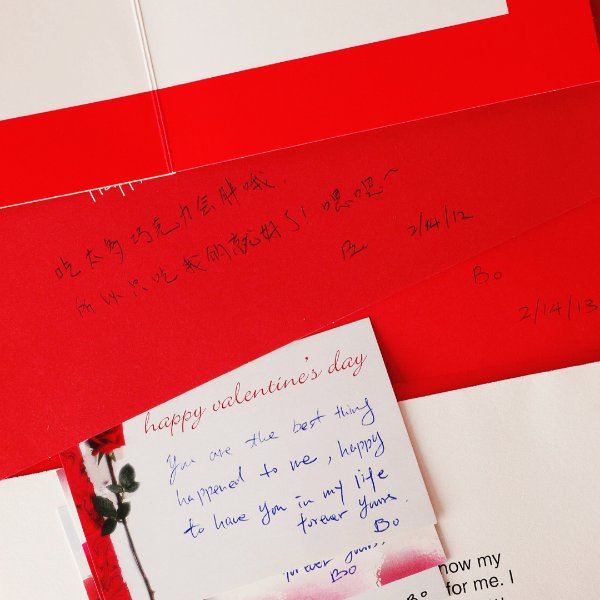 吃太多巧克力会胖哦.
所以只吃我的就好了! 嗯嗯~
Bo 2/14/12
Bo
2/14/13
happy valentine's day
You are the best thing
happened to me, happy
to have you in my life
forever yours.
Bo
forever yours.
Bo
now my
for me. I
Bo